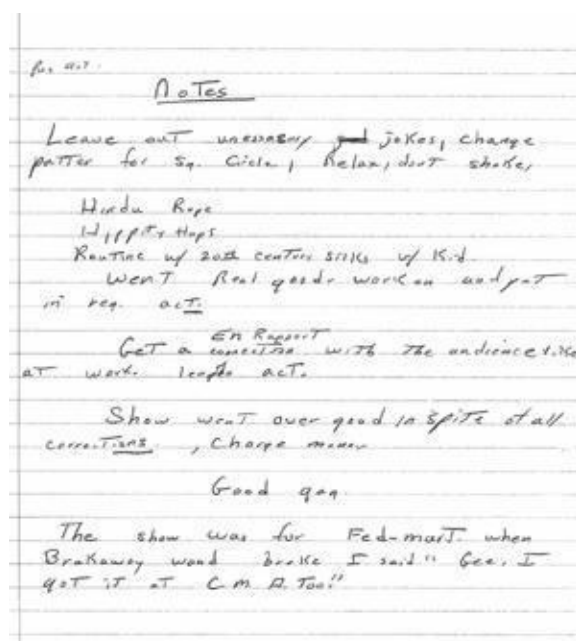 Notes
Leave out unessasary jokes, change
patter for Sq. Circle, Relax, don't shake,
Hindu Rope
Hippity Hops
Routine w/ 20th century silks w/ Kid.
Went Real good. work on and put
in reg. act.
En Rapport
Get a connection with the audience like
at work. length act.
Show went over good in spite of all
corrections, Charge money
Good gag
The show was for Fed-mart. when
Brakaway wand broke I said "Gee, I
got it at C.M.A. Too!"